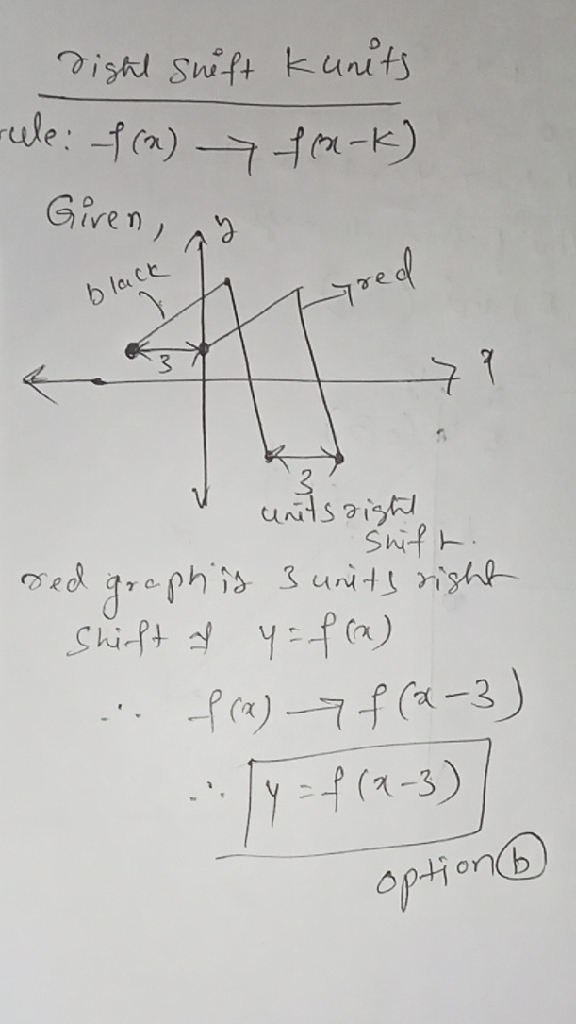 right shift k units
rule: f(x) → f(x-k)
Given,
y
black
red
3
x
3
units right
shift.
red graph is 3 units right
shift of y = f(x)
∴ f(x) → f(x-3)
∴ y = f(x-3)
option b